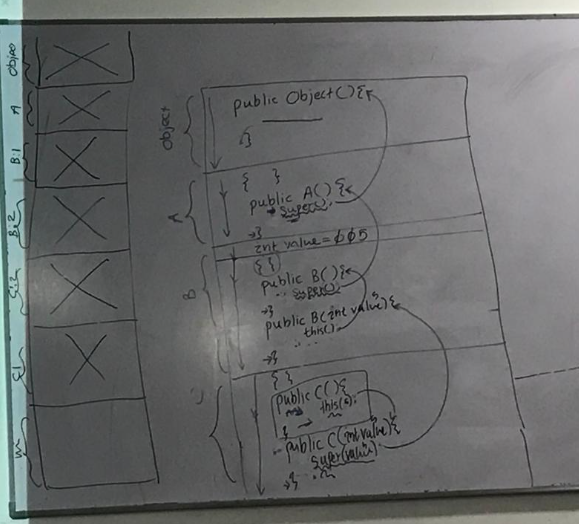 Object
A
B:1
public Object(){
}
Object
{ }
public A(){
super();
}
A
int value = 005
{ }
public B(){
.. super();
}
public B(int value){
this();
....
}
B
{ }
public C(){
this(6);
}
.. public C(int value){
super(value);
}
C